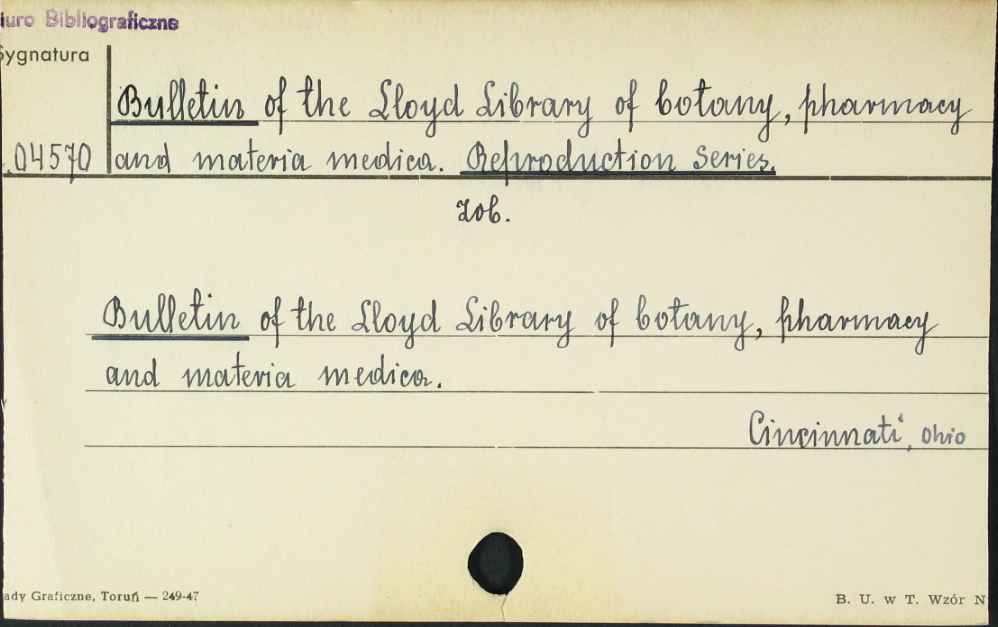 iuro Bibliograficzne
Sygnatura
Bulletin of the Lloyd Library of botany, pharmacy
.04570 and materia medica. Reproduction Series.
zob.
Bulletin of the Lloyd Library of botany, pharmacy
and materia medica.
Cincinnati, Ohio
ady Graficzne, Toruń — 249-47
B. U. w T. Wzór N